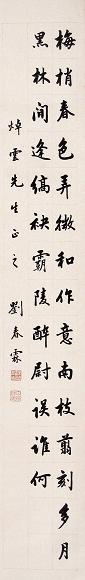 梅梢春色弄微和作意南枝翦刻多月
黑林間逢縞袂霸陵醉尉誤誰何
焯雲先生正之
劉春霖